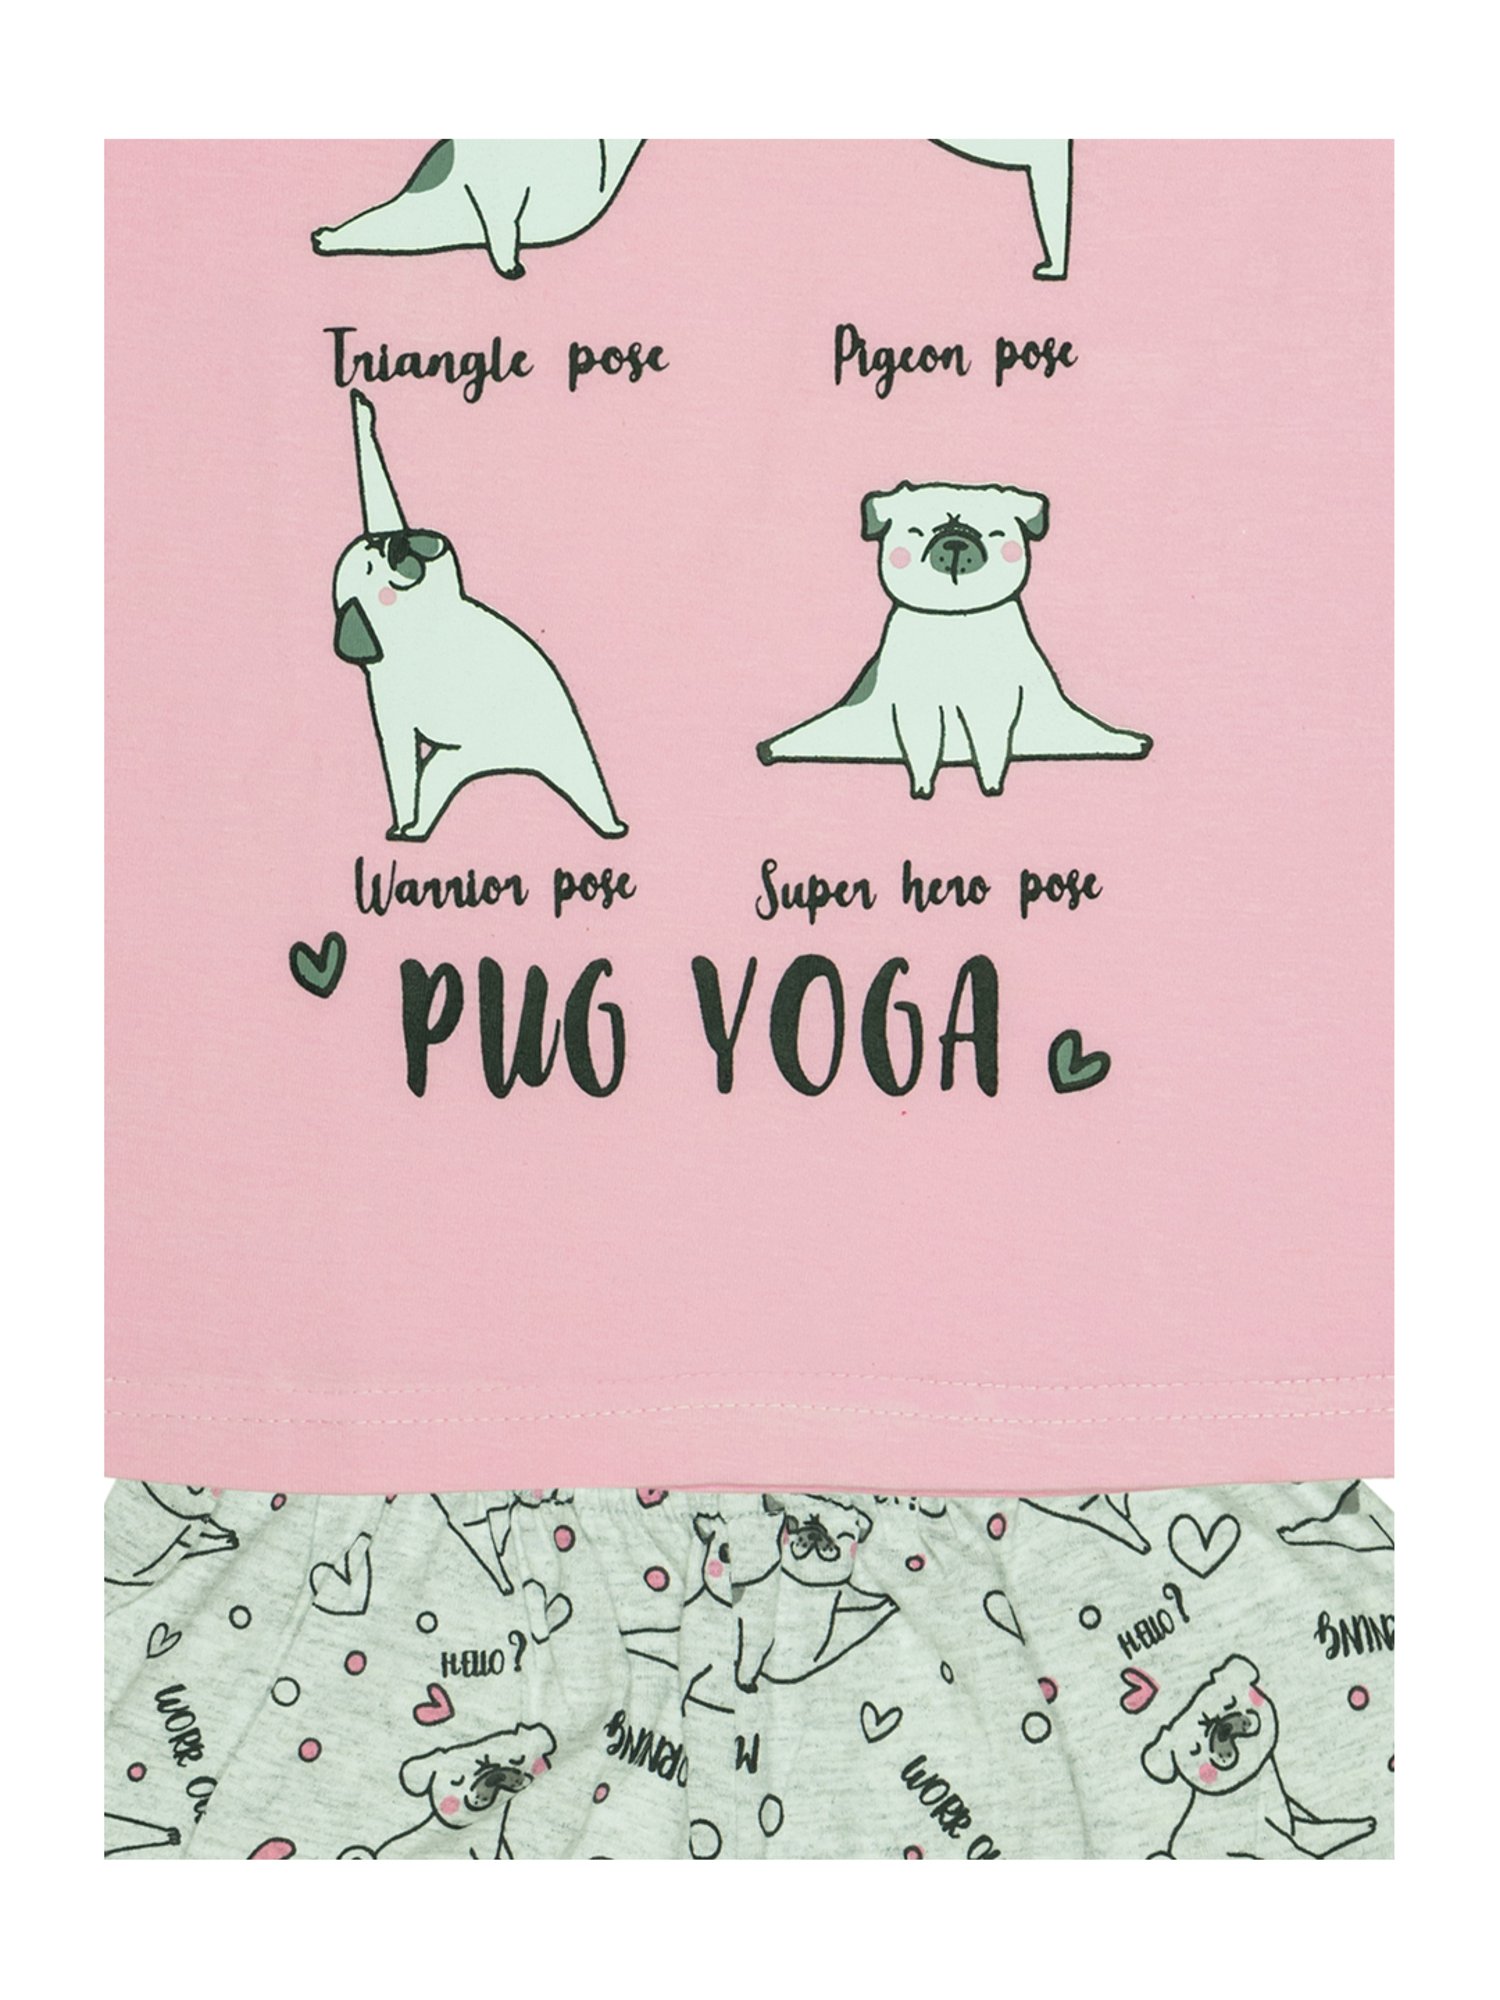 Triangle pose
Pigeon pose
Warrior pose
Super hero pose
PUG YOGA
HELLO?
HELLO?
WORR
WORR